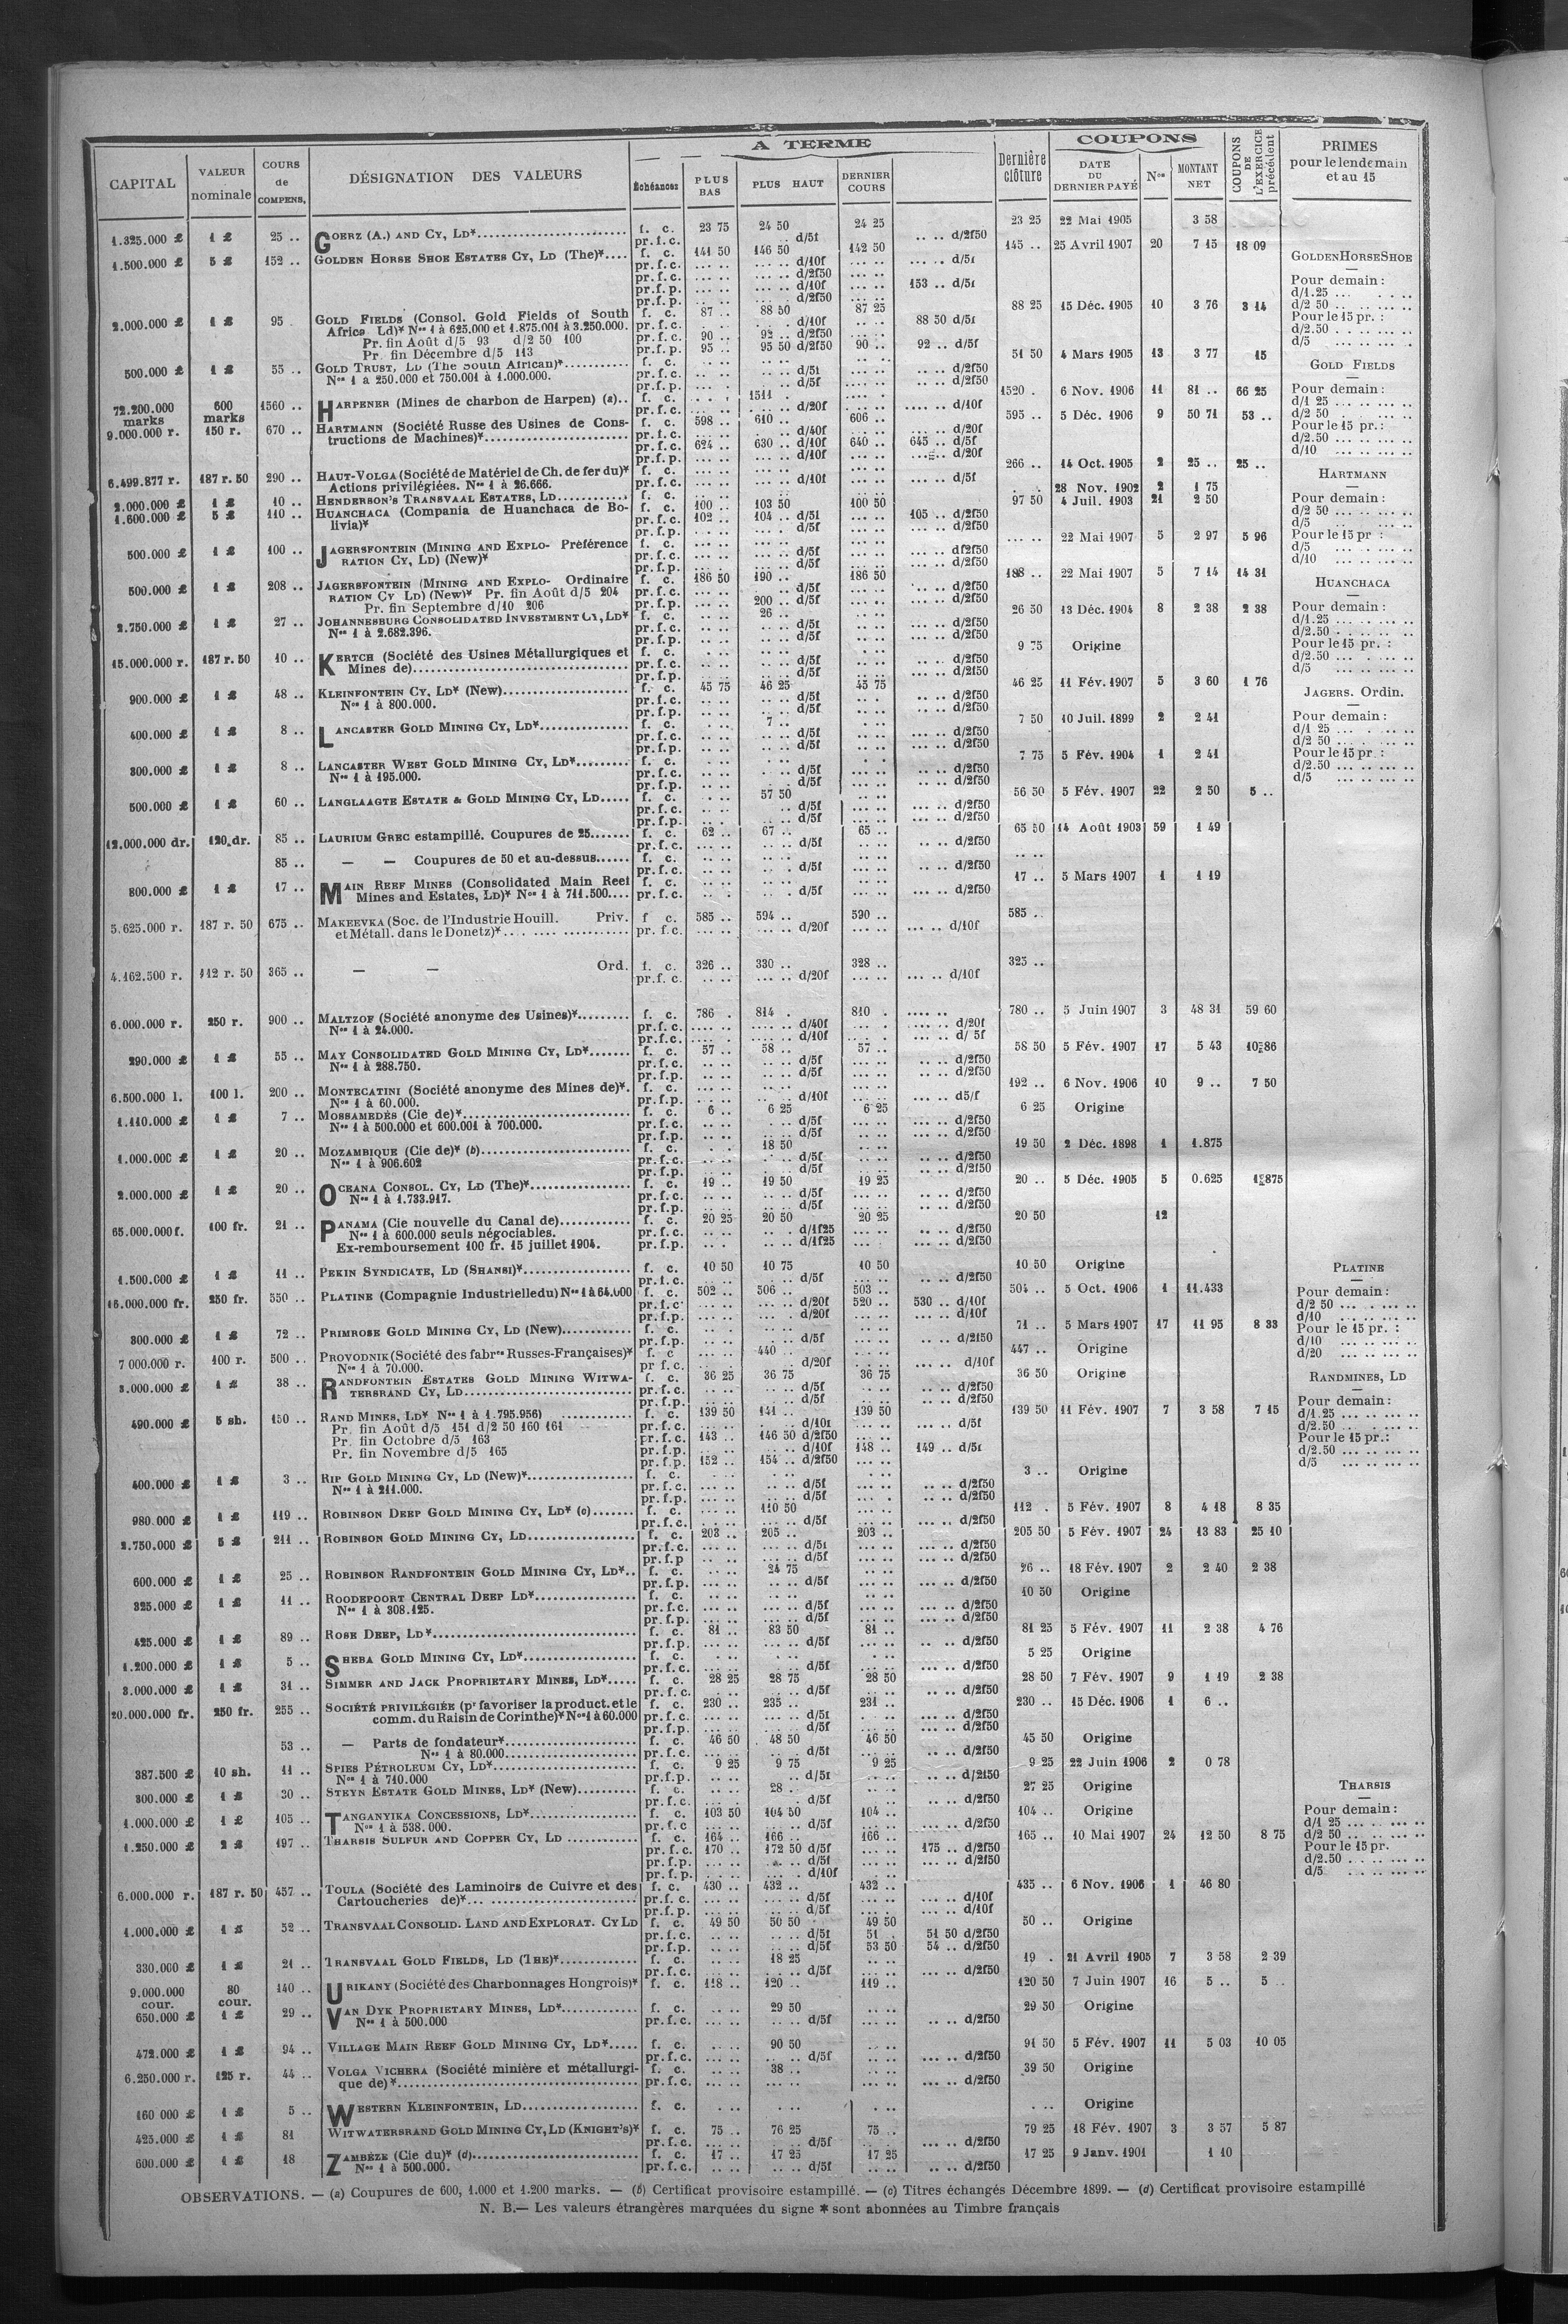 CAPITAL VALEUR nominale COURS de COMPENS. DÉSIGNATION DES VALEURS A TERME Échéances PLUS BAS PLUS HAUT DERNIER COURS Dernière clôture COUPONS DATE DU DERNIER PAYÉ Nos MONTANT NET COUPONS DE L'EXERCICE précédent PRIMES pour le lendemain et au 15
1.325.000 £ 1 £ 25 .. GOERZ (A.) AND CY, LD* f. c. 23 75 24 50 24 25 23 25 22 Mai 1905 3 58
pr. f. c. d/5f .. .. d/2f50
1.500.000 £ 5 £ 152 .. GOLDEN HORSE SHOE ESTATES CY, LD (The)* f. c. 141 50 146 50 142 50 145 .. 25 Avril 1907 20 7 15 18 09
pr. f. c. d/10f d/5f
pr. f. c. d/2f50
pr. f. c. d/10f 153 .. d/5f
pr. f. p. d/2f50
2.000.000 £ 1 £ 95 GOLD FIELDS (Consol. Gold Fields of South f. c. 87 .. 88 50 87 25 88 25 15 Déc. 1905 10 3 76 3 14
Africa Ld)* Nos 1 à 625.000 et 1.875.001 à 3.250.000. pr. f. c. d/10f 88 50 d/5f
Pr. fin Août d/5 93 d/2 50 100 pr. f. c. 90 .. 92 .. d/2f50
Pr. fin Décembre d/5 113 pr. f. p. 95 .. 95 50 d/2f50 90 .. 92 .. d/5f
500.000 £ 1 £ 55 .. GOLD TRUST, LD (The South African)* f. c. 51 50 4 Mars 1905 13 3 77 15
Nos 1 a 250.000 et 750.001 à 1.000.000. pr. f. c. d/5f d/2f50
pr. f. p. d/5f d/2f50
72.200.000 marks 600 marks 1560 .. HARPENER (Mines de charbon de Harpen) (a).. f. c. 1511 1520 . 6 Nov. 1906 11 81 .. 66 25
pr. f. c. d/20f d/10f
9.000.000 r. 150 r. 670 .. HARTMANN (Société Russe des Usines de Cons- f. c. 598 .. 610 .. 606 .. 595 .. 5 Déc. 1906 9 50 71 53 ..
tructions de Machines)* pr. f. c. d/40f d/20f
pr. f. c. 624 .. 630 .. d/10f 640 .. 645 .. d/5f
pr. f. p. d/10f d/20f
6.499.877 r. 187 r. 50 290 .. HAUT-VOLGA (Société de Matériel de Ch. de fer du)* f. c. 266 .. 14 Oct. 1905 2 25 .. 25 ..
Actions privilégiées. Nos 1 à 26.666. pr. f. c. d/10f d/5f
2.000.000 £ 1 £ 10 .. HENDERSON'S TRANSVAAL ESTATES, LD f. c. 28 Nov. 1902 2 1 75
1.600.000 £ 5 £ 110 .. HUANCHACA (Compania de Huanchaca de Bo- f. c. 100 .. 103 50 100 50 97 50 4 Juil. 1903 21 2 50
livia)* pr. f. c. 102 .. 104 .. d/5f 105 .. d/2f50
pr. f. p. d/5f d/2f50
500.000 £ 1 £ 100 .. JAGERSFONTEIN (MINING AND EXPLO- Préférence f. c. 22 Mai 1907 5 2 97 5 96
RATION CY, LD) (New)* pr. f. c. d/5f df2f50
pr. f. p. d/5f d/2f50
500.000 £ 1 £ 208 .. JAGERSFONTEIN (MINING AND EXPLO- Ordinaire f. c. 186 50 190 .. 186 50 188 .. 22 Mai 1907 5 7 14 14 31
RATION CY LD) (New)* Pr. fin Août d/5 204 pr. f. c. d/5f d/2f50
Pr. fin Septembre d/10 206 pr. f. p. 200 .. d/5f d/2f50
2.750.000 £ 1 £ 27 .. JOHANNESBURG CONSOLIDATED INVESTMENT CY, LD* f. c. 26 .. 26 50 13 Déc. 1904 8 2 38 2 38
Nos 1 à 2.682.396. pr. f. c. d/5f d/2f50
pr. f. p. d/5f d/2f50
15.000.000 r. 187 r. 50 10 .. KERTCH (Société des Usines Métallurgiques et f. c. 9 75 Origine
Mines de) pr. f. c. d/5f d/2f50
pr. f. p. d/5f d/2f50
900.000 £ 1 £ 48 .. KLEINFONTEIN CY, LD* (New) f. c. 45 75 46 25 45 75 46 25 11 Fév. 1907 5 3 60 1 76
Nos 1 à 800.000. pr. f. c. d/5f d/2f50
pr. f. p. d/5f d/2f50
400.000 £ 1 £ 8 .. LANCASTER GOLD MINING CY, LD* f. c. 7 .. 7 50 10 Juil. 1899 2 2 41
pr. f. c. d/5f d/2f50
pr. f. p. d/5f d/2f50
300.000 £ 1 £ 8 .. LANCASTER WEST GOLD MINING CY, LD* f. c. 7 75 5 Fév. 1904 1 2 41
Nos 1 à 195.000. pr. f. c. d/5f d/2f50
pr. f. p. d/5f d/2f50
500.000 £ 1 £ 60 .. LANGLAAGTE ESTATE & GOLD MINING CY, LD f. c. 57 50 56 50 5 Fév. 1907 22 2 50 5 ..
pr. f. c. d/5f d/2f50
pr. f. p. d/5f d/2f50
12.000.000 dr. 120 dr. 85 .. LAURIUM GREC estampillé. Coupures de 25 f. c. 62 .. 67 .. 65 .. 65 50 14 Août 1903 59 1 49
pr. f. c. d/5f d/2f50
85 .. — — Coupures de 50 et au-dessus f. c.
pr. f. c. d/5f d/2f50
800.000 £ 1 £ 17 .. MAIN REEF MINES (Consolidated Main Reef f. c. 17 .. 5 Mars 1907 1 1 19
Mines and Estates, LD)* Nos 1 à 711.500 pr. f. c. d/5f d/2f50
5.625.000 r. 187 r. 50 675 .. MAKEEVKA (Soc. de l'Industrie Houill. Priv. f. c. 585 .. 594 .. 590 .. 585 ..
et Métall. dans le Donetz)* pr. f. c. d/20f d/10f
4.162.500 r. 112 r. 50 365 .. — — Ord. f. c. 326 .. 330 .. 328 .. 325 ..
pr. f. c. d/20f d/10f
6.000.000 r. 250 r. 900 .. MALTZOF (Société anonyme des Usines)* f. c. 786 . 814 . 810 . 780 .. 5 Juin 1907 3 48 31 59 60
Nos 1 à 24.000. pr. f. c. d/40f d/20f
pr. f. c. d/10f d/ 5f
290.000 £ 1 £ 55 .. MAY CONSOLIDATED GOLD MINING CY, LD* f. c. 57 .. 58 .. 57 .. 58 50 5 Fév. 1907 17 5 43 10 86
Nos 1 à 288.750. pr. f. c. d/5f d/2f50
pr. f. p. d/5f d/2f50
6.500.000 l. 100 l. 200 .. MONTECATINI (Société anonyme des Mines de)*. f. c. 192 .. 6 Nov. 1906 10 9 .. 7 50
Nos 1 à 60.000. pr. f. p. d/10f d5/f
1.110.000 £ 1 £ 7 .. MOSSAMEDÈS (Cie de)* f. c. 6 .. 6 25 6 25 6 25 Origine
Nos 1 à 500.000 et 600.001 à 700.000. pr. f. c. d/5f d/2f50
pr. f. p. d/5f d/2f50
1.000.000 £ 1 £ 20 .. MOZAMBIQUE (Cie de)* (b) f. c. 18 50 19 50 2 Déc. 1898 1 1.875
Nos 1 à 906.602 pr. f. c. d/5f d/2f50
pr. f. p. d/5f d/2f50
2.000.000 £ 1 £ 20 .. OCEANA CONSOL. CY, LD (The)* f. c. 19 .. 19 50 19 25 20 .. 5 Déc. 1905 5 0.625 1 875
Nos 1 à 1.733.917. pr. f. c. d/5f d/2f50
pr. f. p. d/5f d/2f50
65.000.000 f. 100 fr. 21 .. PANAMA (Cie nouvelle du Canal de) f. c. 20 25 20 50 20 25 20 50 12
Nos 1 à 600.000 seuls négociables. pr. f. c. d/1f25 d/2f50
Ex-remboursement 100 fr. 15 juillet 1904. pr. f. p. d/1f25 d/2f50
1.500.000 £ 1 £ 11 .. PEKIN SYNDICATE, LD (SHANSI)* f. c. 10 50 10 75 10 50 10 50 Origine
pr. f. c. d/5f d/2f50
16.000.000 fr. 250 fr. 550 .. PLATINE (Compagnie Industrielle du) Nos 1 à 64.000 f. c. 502 .. 506 .. 503 .. 504 .. 5 Oct. 1906 1 11.433
pr. f. c. d/20f 520 .. 530 .. d/10f
pr. f. p. d/20f d/10f
300.000 £ 1 £ 72 .. PRIMROSE GOLD MINING CY, LD (New) f. c. 71 .. 5 Mars 1907 17 11 95 8 33
pr. f. p. d/5f d/2f50
7 000.000 r. 100 r. 500 .. PROVODNIK (Société des fabres Russes-Françaises)* f. c 440 .. 447 .. Origine
Nos 1 à 70.000. pr f. c. d/20f d/10f
3.000.000 £ 1 £ 38 .. RANDFONTEIN ESTATES GOLD MINING WITWA- f. c. 36 25 36 75 36 75 36 50 Origine
TERSRAND CY, LD pr. f. c. d/5f d/2f50
pr. f. p. d/5f d/2f50
490.000 £ 5 sh. 150 .. RAND MINES, LD* Nos 1 à 1.795.956) f. c. 139 50 141 .. 139 50 139 50 11 Fév. 1907 7 3 58 7 15
Pr. fin Août d/5 151 d/2 50 160 161 pr. f. c. d/10f d/5f
Pr. fin Octobre d/5 163 pr. f. c. 143 .. 146 50 d/2f50
Pr. fin Novembre d/5 165 pr. f. p. d/10f 148 .. 149 .. d/5f
pr. f. p. 152 .. 154 .. d/2f50
400.000 £ 1 £ 3 .. RIP GOLD MINING CY, LD (New)* f. c. 3 .. Origine
Nos 1 à 211.000. pr. f. c. d/5f d/2f50
pr. f. p. d/5f d/2f50
980.000 £ 1 £ 119 .. ROBINSON DEEP GOLD MINING CY, LD* (c) f. c. 110 50 112 . 5 Fév. 1907 8 4 18 8 35
pr. f. c. d/5f d/2f50
2.750.000 £ 5 £ 211 .. ROBINSON GOLD MINING CY, LD f. c. 203 .. 205 .. 203 .. 205 50 5 Fév. 1907 24 13 83 25 10
pr. f. c. d/5f d/2f50
pr. f. p d/5f d/2f50
600.000 £ 1 £ 25 .. ROBINSON RANDFONTEIN GOLD MINING CY, LD*.. f. c. 24 75 26 .. 18 Fév. 1907 2 2 40 2 38
pr. f. p. d/5f d/2f50
325.000 £ 1 £ 11 .. ROODEPOORT CENTRAL DEEP LD* f. c. 10 50 Origine
Nos 1 à 308.125. pr. f. c. d/5f d/2f50
pr. f. p. d/5f d/2f50
425.000 £ 1 £ 89 .. ROSE DEEP, LD* f. c. 81 .. 83 50 81 .. 81 25 5 Fév. 1907 11 2 38 4 76
pr. f. p. d/5f d/2f50
1.200.000 £ 1 £ 5 .. SHEBA GOLD MINING CY, LD* f. c. 5 25 Origine
pr. f. c. d/5f d/2f50
3.000.000 £ 1 £ 31 .. SIMMER AND JACK PROPRIETARY MINES, LD* f. c. 28 25 28 75 28 50 28 50 7 Fév. 1907 9 1 19 2 38
pr. f. c. d/5f d/2f50
20.000.000 fr. 250 fr. 255 .. SOCIÉTÉ PRIVILÉGIÉE (pr favoriser la product. et le f. c. 230 .. 235 .. 231 .. 230 .. 15 Déc. 1906 1 6 ..
comm. du Raisin de Corinthe)* Nos 1 à 60.000 pr. f. c. d/5f d/2f50
pr. f. p. d/5f d/2f50
53 .. — Parts de fondateur* f. c. 46 50 48 50 46 50 45 50 Origine
Nos 1 à 80.000 pr. f. c. d/5f d/2f50
387.500 £ 10 sh. 11 .. SPIES PÉTROLEUM CY, LD* f. c. 9 25 9 75 9 25 9 25 22 Juin 1906 2 0 78
Nos 1 à 710.000 pr. f. p. d/5f d/2f50
300.000 £ 1 £ 30 .. STEYN ESTATE GOLD MINES, LD* (New) f. c. 28 .. 27 25 Origine
pr. f. c. d/5f d/2f50
1.000.000 £ 1 £ 105 .. TANGANYIKA CONCESSIONS, LD* f. c. 103 50 104 50 104 .. 104 .. Origine
Nos 1 à 538.000. pr. f. c d/5f d/2f50
1.250.000 £ 2 £ 197 .. THARSIS SULFUR AND COPPER CY, LD f. c. 164 .. 166 .. 166 .. 165 .. 10 Mai 1907 24 12 50 8 75
pr. f. c. 170 .. 172 50 d/5f 175 .. d/2f50
pr. f. p. d/5f d/2f50
pr. f. p. d/10f
6.000.000 r. 187 r. 50 457 .. TOULA (Société des Laminoirs de Cuivre et des f. c. 430 .. 432 .. 432 .. 435 .. 6 Nov. 1906 1 46 80
Cartoucheries de)* pr. f. c. d/5f d/10f
pr. f. p. d/5f d/10f
1.000.000 £ 1 £ 52 .. TRANSVAAL CONSOLID. LAND AND EXPLORAT. CY LD f. c. 49 50 50 50 49 50 50 .. Origine
pr. f. c. d/5f 51 . 51 50 d/2f50
pr. f. p. d/5f 53 50 54 .. d/2f50
330.000 £ 1 £ 21 .. TRANSVAAL GOLD FIELDS, LD (THE)* f. c. 18 25 19 . 21 Avril 1905 7 3 58 2 39
pr. f. c. d/5f d/2f50
9.000.000 cour. 80 cour. 140 .. URIKANY (Société des Charbonnages Hongrois)* f. c. 118 .. 120 .. 119 .. 120 50 7 Juin 1907 16 5 .. 5 ..
650.000 £ 1 £ 29 .. VAN DYK PROPRIETARY MINES, LD* f. c. 29 50 29 50 Origine
Nos 1 à 500.000 pr. f. c. d/5f d/2f50
472.000 £ 1 £ 94 .. VILLAGE MAIN REEF GOLD MINING CY, LD* f. c. 90 50 91 50 5 Fév. 1907 11 5 03 10 05
pr. f. c. d/5f d/2f50
6.250.000 r. 125 r. 44 .. VOLGA VICHERA (Société minière et métallurgi- f. c. 38 .. 39 50 Origine
que de)* pr. f. c. d/2f50
160 000 £ 1 £ 5 .. WESTERN KLEINFONTEIN, LD f. c. Origine
425.000 £ 1 £ 81 WITWATERSRAND GOLD MINING CY, LD (KNIGHT'S)* f. c. 75 .. 76 25 75 .. 79 25 18 Fév. 1907 3 3 57 5 87
pr. f. c. d/5f d/2f50
600.000 £ 1 £ 18 ZAMBÈZE (Cie du)* (d) f. c. 17 .. 17 25 17 25 17 25 9 Janv. 1901 1 10
Nos 1 à 500.000. pr. f. c. d/5f d/2f50
GOLDEN HORSE SHOE
Pour demain :
d/1.25
d/2 50
Pour le 15 pr. :
d/2.50
d/5
GOLD FIELDS
Pour demain :
d/1 25
d/2 50
Pour le 15 pr. :
d/2.50
d/10
HARTMANN
Pour demain :
d/2 50
d/5
Pour le 15 pr :
d/5
d/10
HUANCHACA
Pour demain :
d/1.25
d/2.50
Pour le 15 pr. :
d/2.50
d/5
JAGERS. Ordin.
Pour demain :
d/1 25
d/2 50
Pour le 15 pr. :
d/2.50
d/5
PLATINE
Pour demain :
d/2 50
d/10
Pour le 15 pr. :
d/10
d/20
RANDMINES, LD
Pour demain :
d/1.25
d/2.50
Pour le 15 pr. :
d/2.50
d/5
THARSIS
Pour demain :
d/1 25
d/2 50
Pour le 15 pr.
d/2.50
d/5
OBSERVATIONS. — (a) Coupures de 600, 1.000 et 1.200 marks. — (b) Certificat provisoire estampillé. — (c) Titres échangés Décembre 1899. — (d) Certificat provisoire estampillé
N. B.— Les valeurs étrangères marquées du signe * sont abonnées au Timbre français